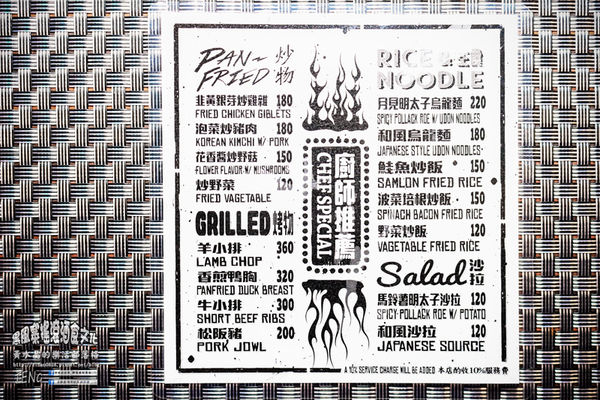 PAN~ 炒
FRIED 物
韭黃銀芽炒雞雜 180
FRIED CHICKEN GIBLETS
泡菜炒豬肉 180
KOREAN KIMCHI W/ PORK
花香醬炒野菇 150
FLOWER FLAVOR W/ MUSHROOMS
炒野菜 120
FRIED VAGETABLE
GRILLED 烤物
羊小排 360
LAMB CHOP
香煎鴨胸 320
PANFRIED DUCK BREAST
牛小排 300
SHORT BEEF RIBS
松阪豬 200
PORK JOWL
廚師推薦
CHEF SPECIAL
RICE &
NOODLE
月見明太子烏龍麵 220
SPICY POLLACK ROE W/ UDON NOODLES
和風烏龍麵 180
JAPANESE STYLE UDON NOODLES
鮭魚炒飯 150
SAMLON FRIED RICE
菠菜培根炒飯 150
SPINACH BACON FRIED RICE
野菜炒飯 120
VAGETABLE FRIED RICE
Salad 沙拉
馬鈴薯明太子沙拉 120
SPICY POLLACK ROE W/ POTATO
和風沙拉 120
JAPANESE SOURCE
A 10% SERVICE CHARGE WILL BE ADDED 本店酌收10%服務費
黃水晶的樂活部落格